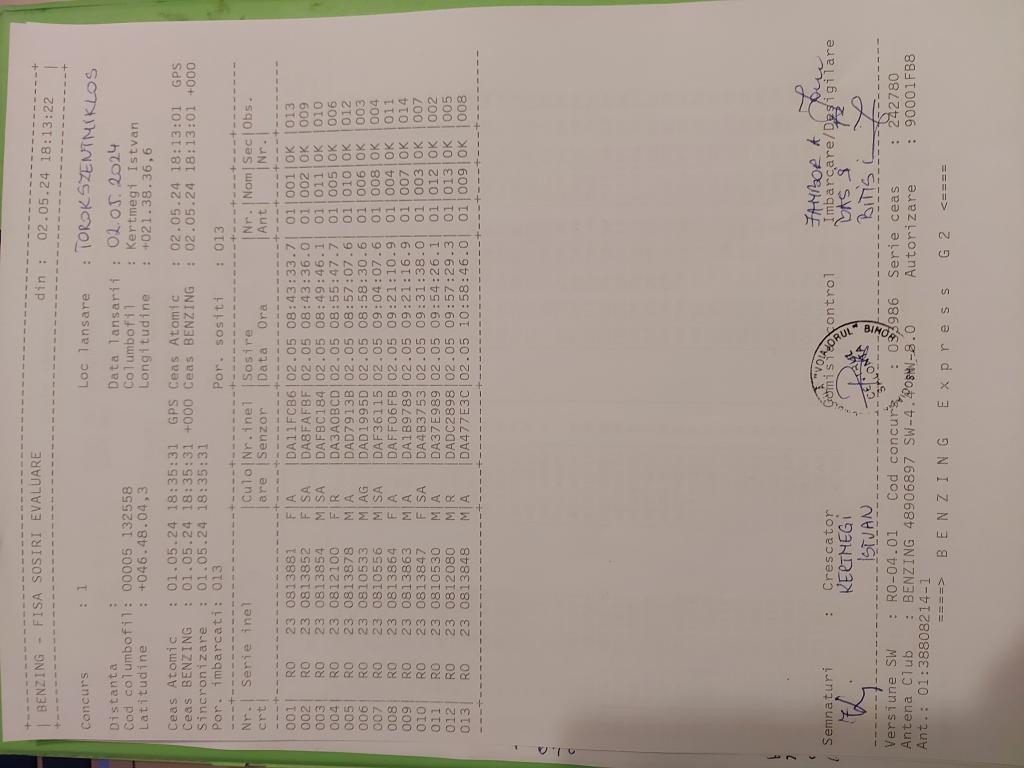 BENZING - FISA SOSIRI EVALUARE din : 02.05.24 18:13:22
Concurs : 1 Loc lansare : TOROKSZENTMIKLOS
Distanta : Data lansarii : 02.05.2024
Cod columbofil: 00005 132558 Columbofil : Kertmegi Istvan
Latitudine : +046.48.04,3 Longitudine : +021.38.36,6
Ceas Atomic : 01.05.24 18:35:31 GPS Ceas Atomic : 02.05.24 18:13:01 GPS
Ceas BENZING : 01.05.24 18:35:31 +000 Ceas BENZING : 02.05.24 18:13:01 +000
Sincronizare : 01.05.24 18:35:31
Por. imbarcati: 013 Por. sositi : 013
Nr.| Serie inel |Culo|Nr.inel |Sosire |Nr. |Nom|Sec|Obs.
crt| |are |Senzor |Data Ora |Ant| |Nr.|
001| RO 23 0813881 F| A |DA11FCB6|02.05 08:43:33.7| 01|001|OK |013
002| RO 23 0813852 F| SA |DA8FAFBF|02.05 08:43:36.0| 01|002|OK |009
003| RO 23 0813854 M| SA |DAFBC184|02.05 08:49:46.1| 01|011|OK |010
004| RO 23 0812100 F| R |DA3A0BCD|02.05 08:55:47.7| 01|005|OK |006
005| RO 23 0813878 M| A |DAD7913B|02.05 08:57:07.6| 01|010|OK |012
006| RO 23 0810533 M| AG |DAD1995D|02.05 08:58:30.6| 01|006|OK |003
007| RO 23 0810556 M| SA |DAF36115|02.05 09:04:07.6| 01|008|OK |004
008| RO 23 0813864 F| A |DAFF06FB|02.05 09:21:10.9| 01|004|OK |011
009| RO 23 0813863 M| A |DA1B9789|02.05 09:21:16.9| 01|007|OK |014
010| RO 23 0813847 F| SA |DA4B3753|02.05 09:31:38.0| 01|003|OK |007
011| RO 23 0810530 M| A |DA37E989|02.05 09:54:26.1| 01|012|OK |002
012| RO 23 0812080 M| R |DADC2898|02.05 09:57:29.3| 01|013|OK |005
013| RO 23 0813848 M| A |DA477E3C|02.05 10:58:46.0| 01|009|OK |008
Semnaturi : Crescator Comisia control Imbarcare/Desigilare
KERTMEGI
ISTVAN
"VOIAJORUL" BIHOR
Versiune SW : RO-04.01 Cod concurs : 03986 Serie ceas : 242780
Antena Club : BENZING 48906897 Autorizare : 90001FB8
Ant.: 01:38808214-1
====> B E N Z I N G E x p r e s s G 2 <====